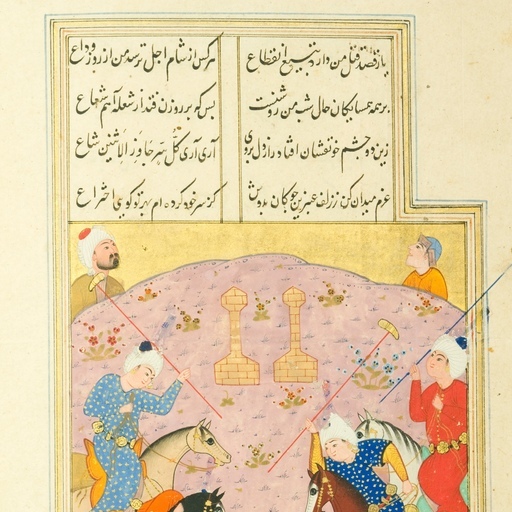 یار قصد قتل من دارد به تیغ انقطاع هر کس از شام اجل ترسد من از روز وداع
بر همه همسایگان حال شب من روشنست بس که بر روزن فتد از شعله آهم شعاع
زین دو چشم خونفشان افتاد راز دل بروی آری آری کل سر جاوز الاثنین شاع
عزم میدان کن ز زلف عنبرین چوکان بدوش کز سر خود کرده‌ام بهر تو کوی اختراع